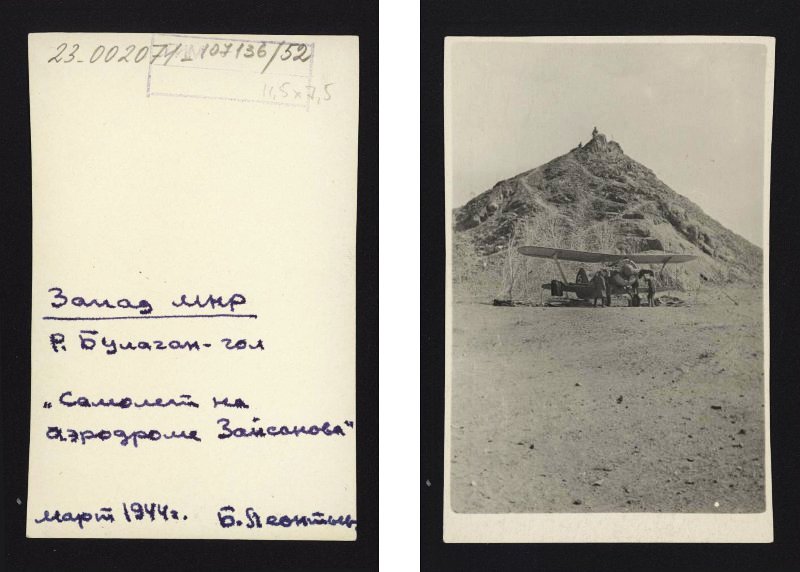 23-00207/1 107136/52
11,5x7,5
Запад МНР
Р. Булаган-гол
„Самолет на
аэродроме Зайсанова"
март 1944г. Б. Леонтьев